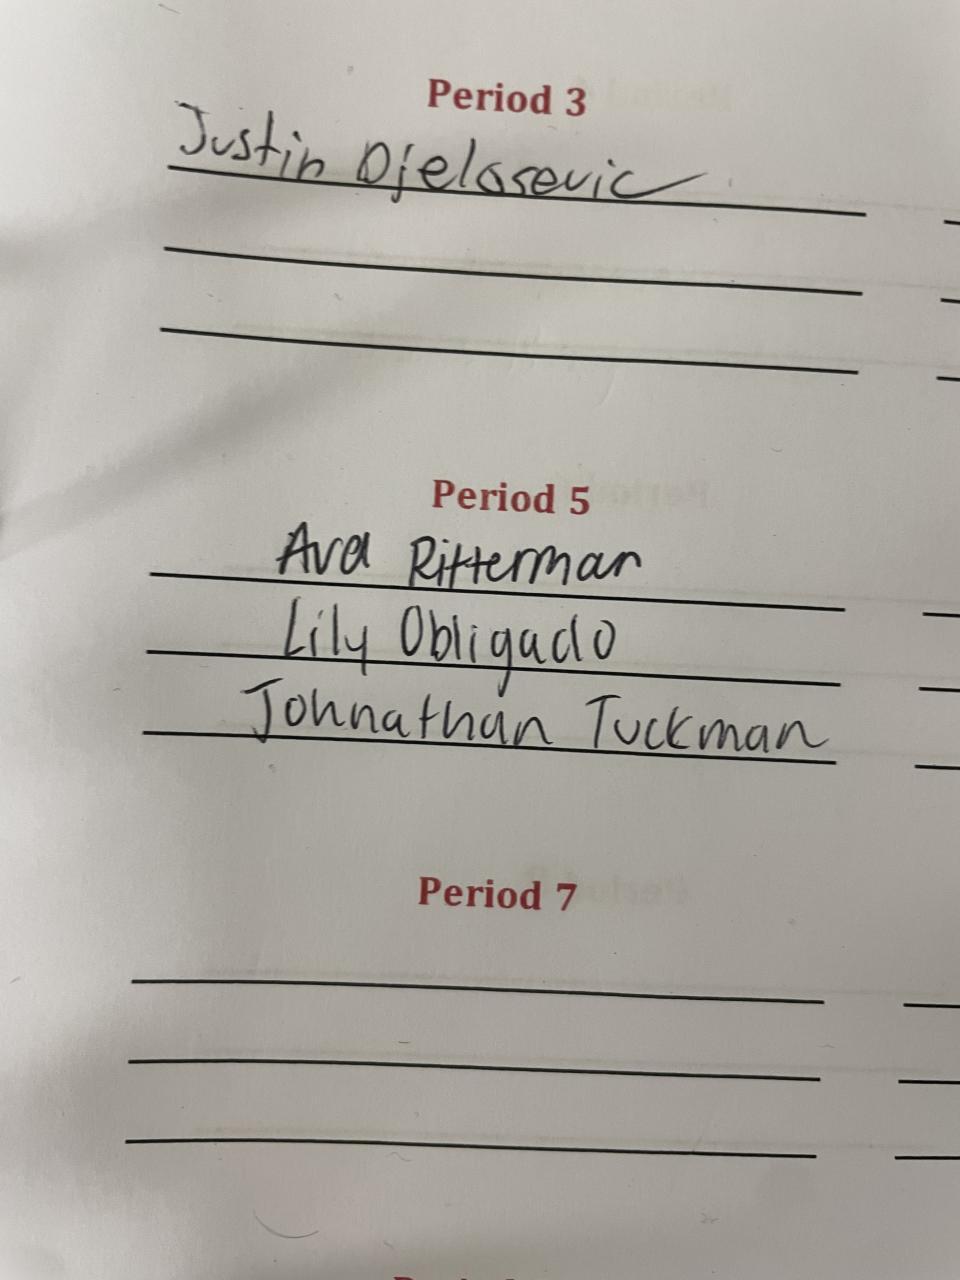 Period 3
Justin Djelosevic
Period 5
Ava Ritterman
Lily Obligado
Johnathan Tuckman
Period 7